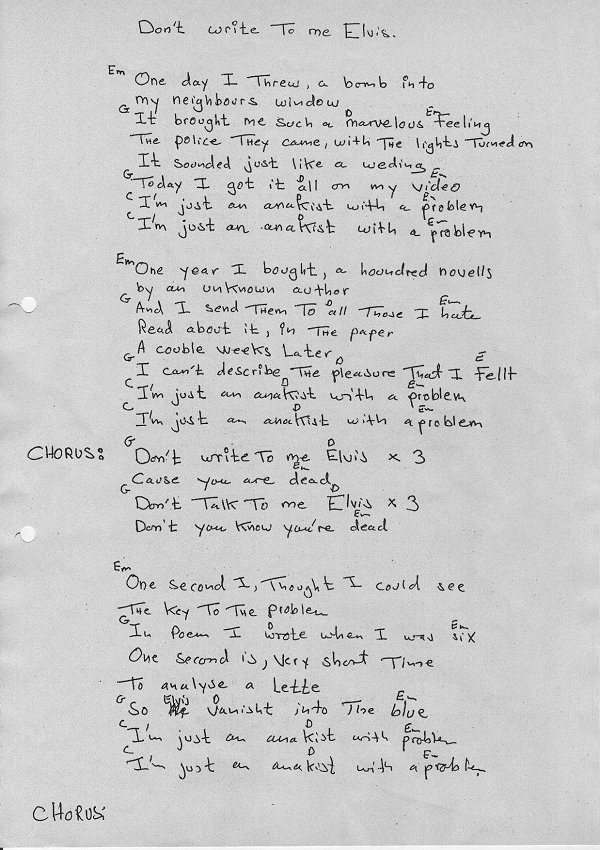 Don't write To me Elvis.
Em
One day I Threw, a bomb into
my neighbours window
G D Em
It brought me such a marvelous Feeling
The police They came, with The lights Turned on
It sounded just like a weding
G D Em
Today I got it all on my video
C D Em
I'm just an anakist with a problem
C D Em
I'm just an anakist with a problem
Em
One year I bought, a houndred novells
by an unknown author
G D Em
And I send Them To all Those I hate
Read about it, in The paper
A couble weeks Later
G D E
I can't describe The pleasure That I Fellt
C D Em
I'm just an anakist with a problem
C D Em
I'm just an anakist with a problem
G D
CHORUS: Don't write To me Elvis x 3
Em
Cause you are dead
G D
Don't Talk To me Elvis x 3
Em
Don't you know you're dead
Em
One second I, Thought I could see
The Key To The problem
G D Em
In Poem I wrote when I was six
One second is, very short Time
To analyse a Lette
G Elvis D Em
So vanisht into The blue
C D Em
I'm just an anakist with problem
C D Em
I'm just an anakist with a problem
CHORUS: